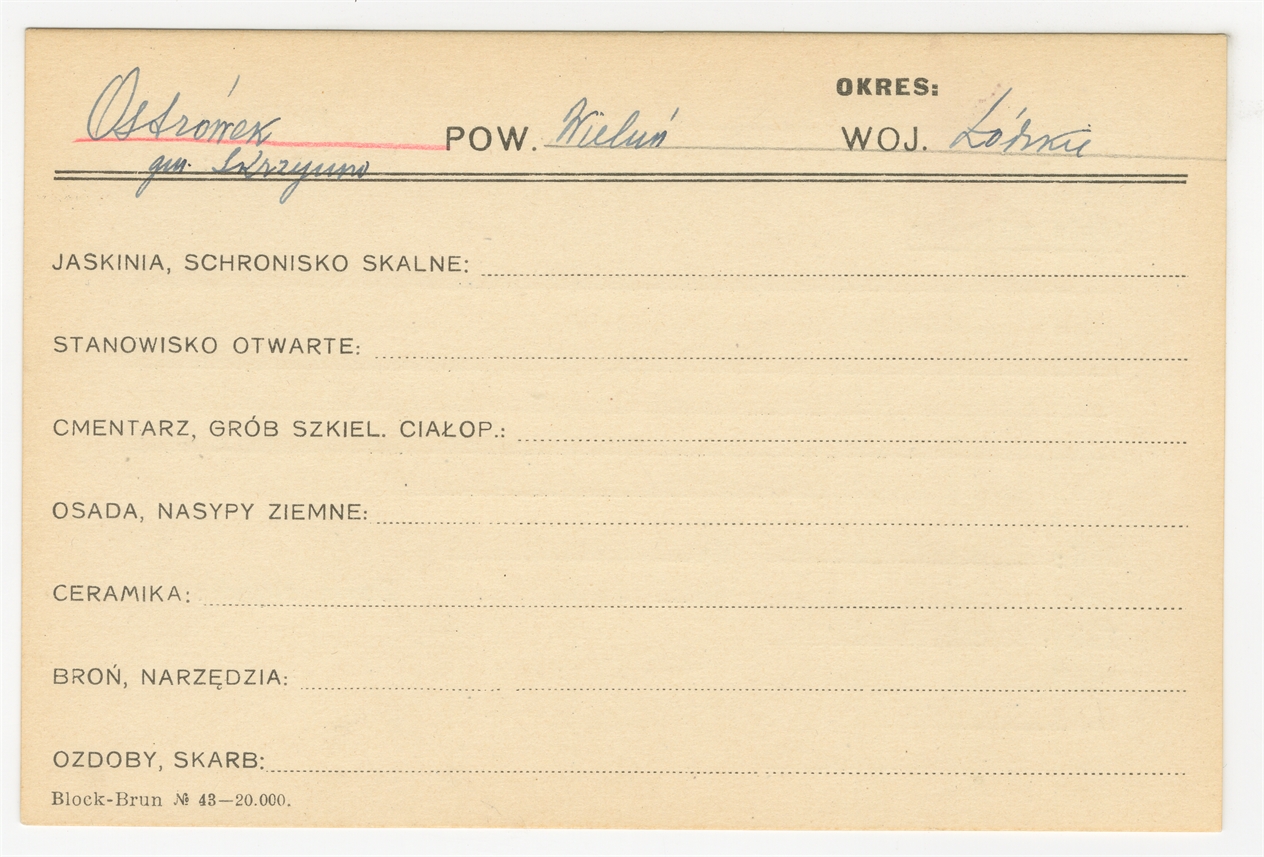 OKRES:
Ostrówek POW. Wieluń WOJ. Łódzkie
gm. Skrzynno
JASKINIA, SCHRONISKO SKALNE:
STANOWISKO OTWARTE:
CMENTARZ, GRÓB SZKIEL. CIAŁOP.:
OSADA, NASYPY ZIEMNE:
CERAMIKA:
BROŃ, NARZĘDZIA:
OZDOBY, SKARB:
Block-Brun № 43—20.000.